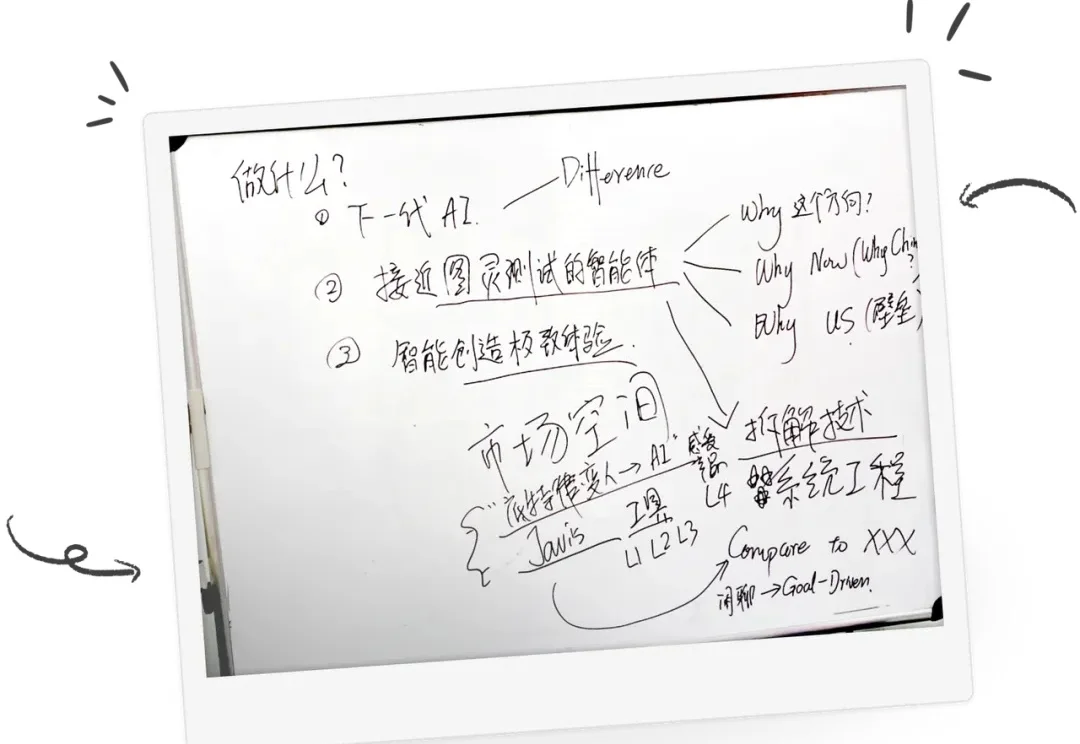 做什么?
① 下一代 AI.
Difference
② 接近图灵测试的智能体
Why 这个方向?
Why Now (Why Ch
Why US (壁垒)
③ 智能创造极致体验.
市场空间
拆解技术
系统工程
"底特律变人→AI"
L4
Javis
工具
L1 L2 L3
Compare to XXX
闲聊→Goal-Driven.